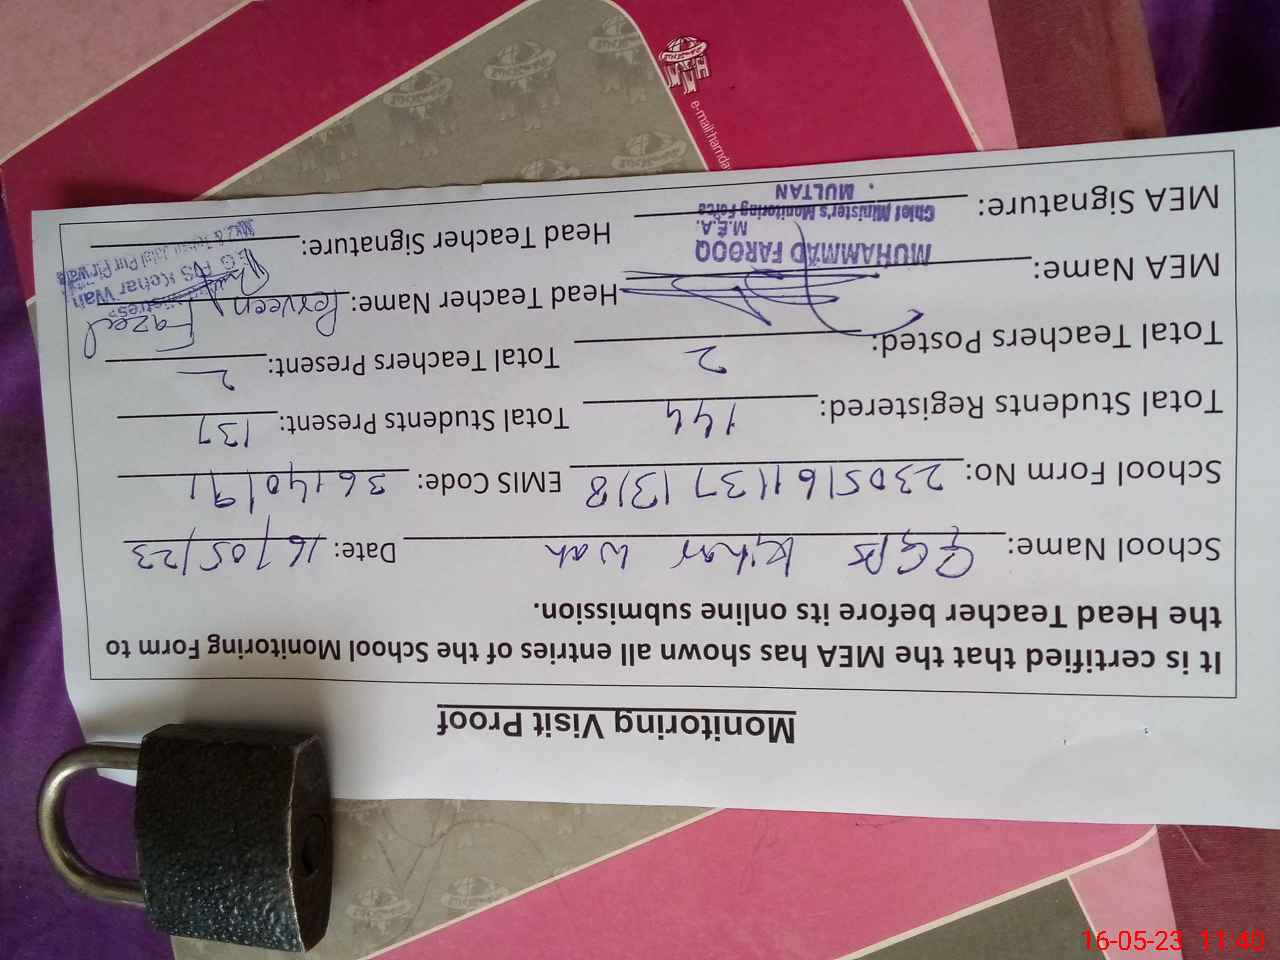 Monitoring Visit Proof
It is certified that the MEA has shown all entries of the School Monitoring Form to
the Head Teacher before its online submission.
School Name: GGPS Kihar Wah Date: 16/05/23
School Form No: 23051611371318 EMIS Code: 36140191
Total Students Registered: 144 Total Students Present: 137
Total Teachers Posted: 2 Total Teachers Present: 2
MEA Name: Head Teacher Name: Parveen Fazal
MUHAMMAD FAROOQ
M.E.A.
Chief Minister's Monitoring Force
MULTAN
MEA Signature: Head Teacher Signature:
Jalal Pur Pir Wala
e-mail:hamda
16-05-23 11:40